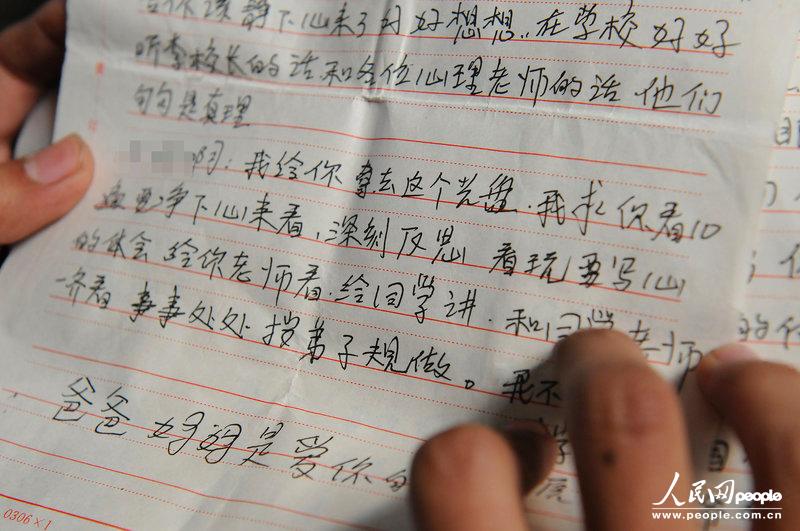 你该静下心来了对好想想，在学校好好
听李校长的话和全位心理老师的话他们
句句是真理
啊：我给你寄去这个光盘．我求你看10
遍 要净下心来看，深刻反思 看玩要写心
的体会 给你老师看．给同学讲．和同学老师
一齐看 事事处处按弟子规做。我不
爸爸 妈妈是爱你的
0306×1
人民网 people
www.people.com.cn